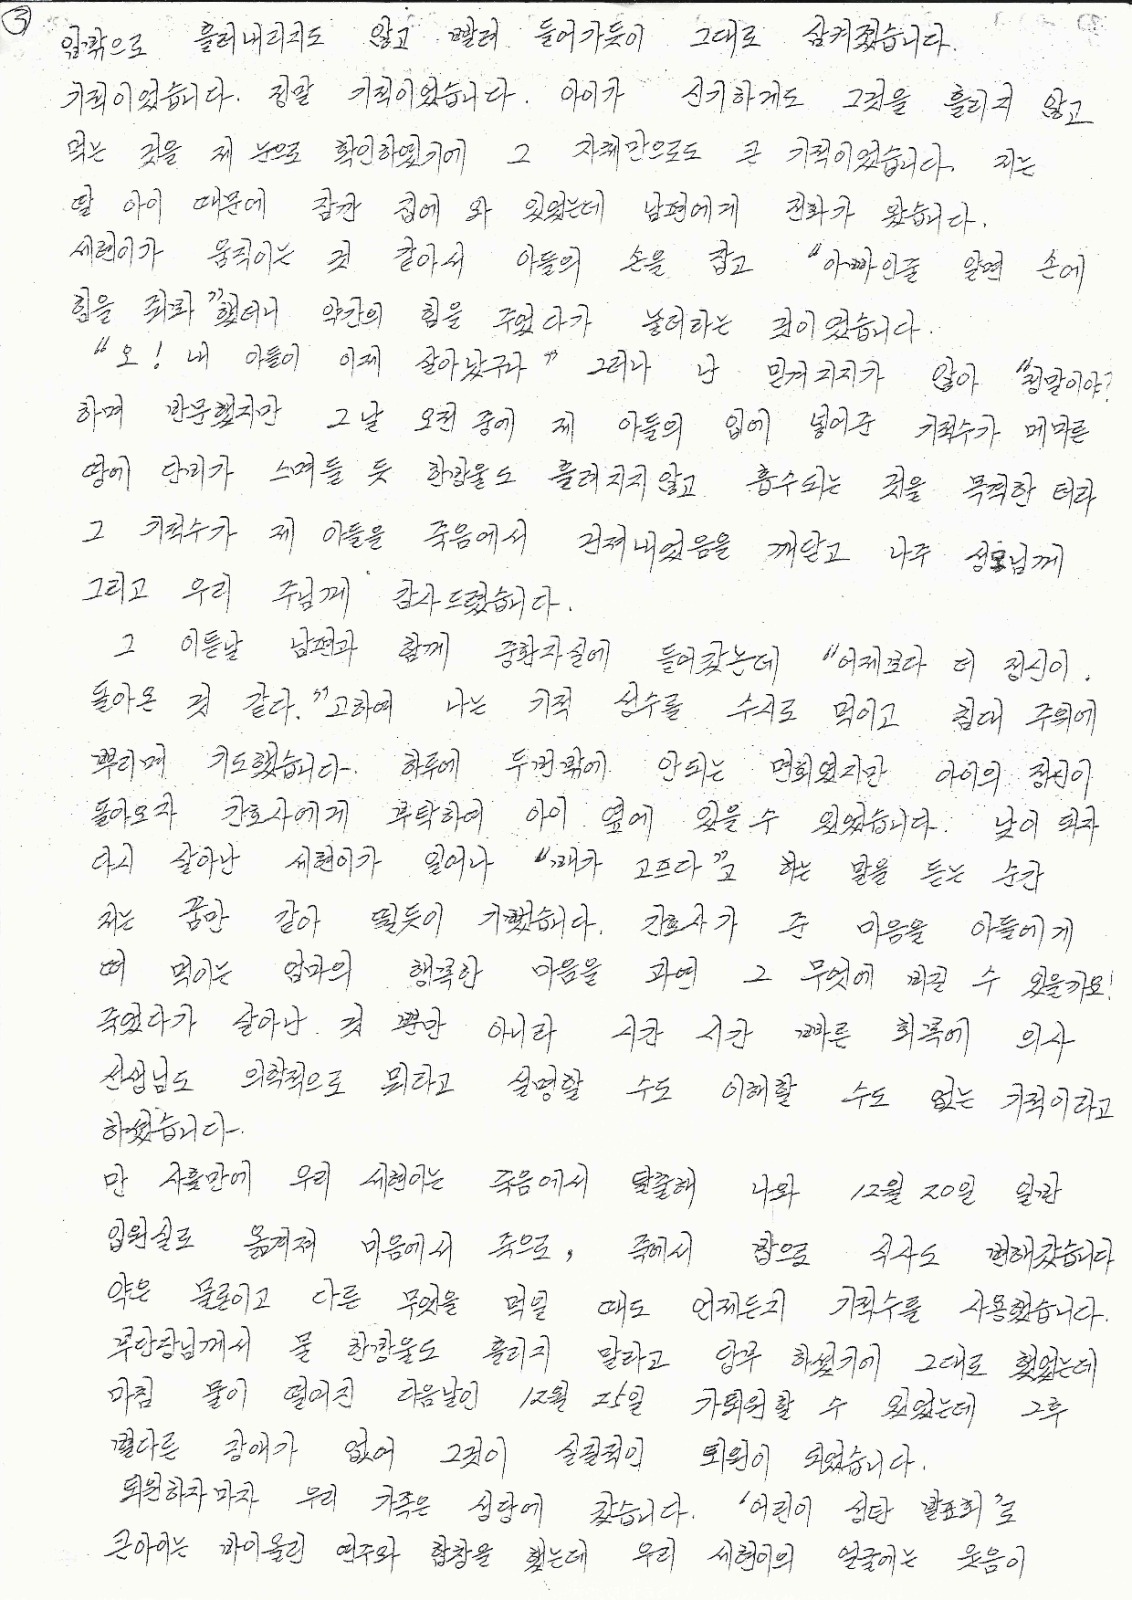 ③
입밖으로 흘러내리지도 않고 빨려 들어가듯이 그대로 삼켜졌습니다.
기적이었습니다. 정말 기적이었습니다. 아이가 신기하게도 그것을 흘리지 않고
먹는 것을 제 눈으로 확인하였기에 그 자체만으로도 큰 기적이었습니다. 저는
딸 아이 때문에 잠깐 집에 와 있었는데 남편에게 전화가 왔습니다.
세현이가 움직이는 것 같아서 아들의 손을 잡고 "아빠인줄 알면 손에
힘을 줘봐"했더니 약간의 힘을 주었다가 놓더라는 것이었습니다.
"오! 내 아들이 이제 살아났구나" 그러나 난 믿겨지지가 않아 "정말이야?
하며 반문했지만 그날 오전 중에 제 아들의 입에 넣어준 기적수가 메마른
땅에 단비가 스며들 듯 한방울도 흘려지지않고 흡수되는 것을 목격한 터라
그 기적수가 제 아들을 죽음에서 건져내었음을 깨닫고 나주 성모님께
그리고 우리 주님께 감사드렸습니다.
그 이튿날 남편과 함께 중환자실에 들어갔는데 "어제보다 더 정신이
돌아온 것 같다."고하여 나는 기적 성수를 수시로 먹이고 침대 주위에
뿌리며 기도했습니다. 하루에 두번밖에 안되는 면회였지만 아이의 정신이
돌아오자 간호사에게 부탁하여 아이 옆에 있을수 있었습니다. 낮이 되자
다시 살아난 세현이가 일어나 "배가 고프다"고 하는 말을 듣는 순간
저는 꿈만 같아 뛸듯이 기뻤습니다. 간호사가 준 미음을 아들에게
떠 먹이는 엄마의 행복한 마음을 과연 그 무엇에 비길 수 있을까요!
죽었다가 살아난 것 뿐만 아니라 시간 시간 빠른 회복에 의사
선생님도 의학적으로 뭐라고 설명할 수도 이해할 수도 없는 기적이라고
하셨습니다.
만 사흘만에 우리 세현이는 죽음에서 탈출해 나와 12월 20일 일반
입원실로 옮겨져 미음에서 죽으로, 죽에서 밥으로 식사도 변해갔습니다
약은 물론이고 다른 무엇을 먹일 때도 언제든지 기적수를 사용했습니다.
부단장님께서 물 한방울도 흘리지 말라고 당부 하셨기에 그대로 했었는데
마침 물이 떨어진 다음날인 12월 25일 가퇴원할 수 있었는데 그후
별다른 장애가 없어 그것이 실질적인 퇴원이 되었습니다.
퇴원하자마자 우리 가족은 성당에 갔습니다. '어린이 성탄 발표회'로
큰아이는 바이올린 연주와 합창을 했는데 우리 세현이의 얼굴에는 웃음이